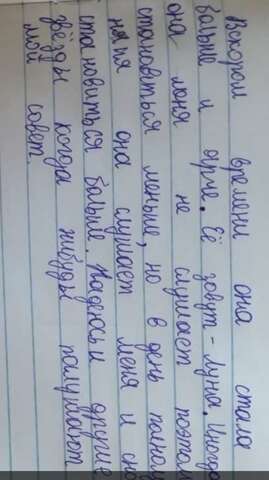 Вскором времени она стала
больше и ярче. Её зовут - Луна. Иногда
она меня не слушает поэтом
становиться меньше, но в день полнол
ния она слушает меня и сно
становиться больше. Надеюсь и другие
звёзды когда нибудь паслушают
мой совет.